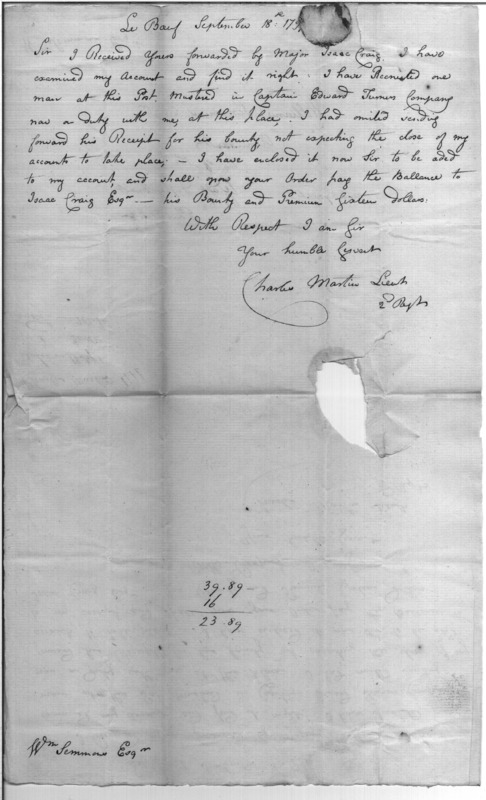 Le Bœuf September 18th 179
Sir I Received Yours forwarded by Major Isaac Craig. I have
examined my Account and find it right. I have Recruited one
man at this Post Musterd in Captain Edward Turners Company
now on duty with me, at this Place. I had omited sending
forward his Receipt for his bounty, not expecting the close of my
accounts to take place; – I have enclosed it now Sir to be aded
to my account, and shall upon your Order pay the Ballance to
Isaac Craig Esqr — his Bounty and Premium Sixteen dollars.
With Respect I am Sir
Your humble Servt
Charles Martin Lieut
2d Regt
39.89
16
23.89
Wm Simmons Esqr